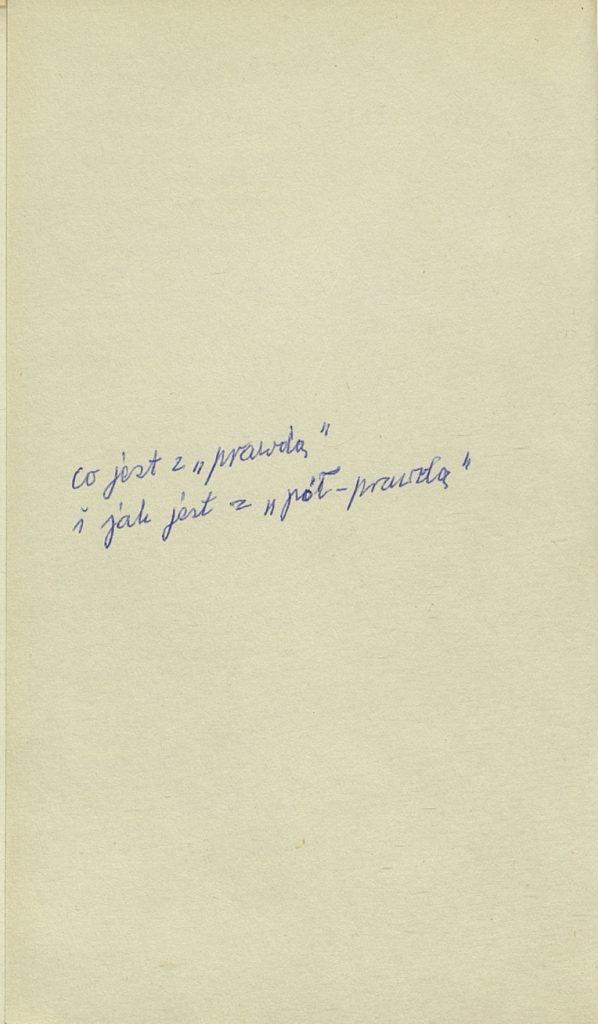 co jest z „prawdą”
i jak jest z „pół-prawdą”